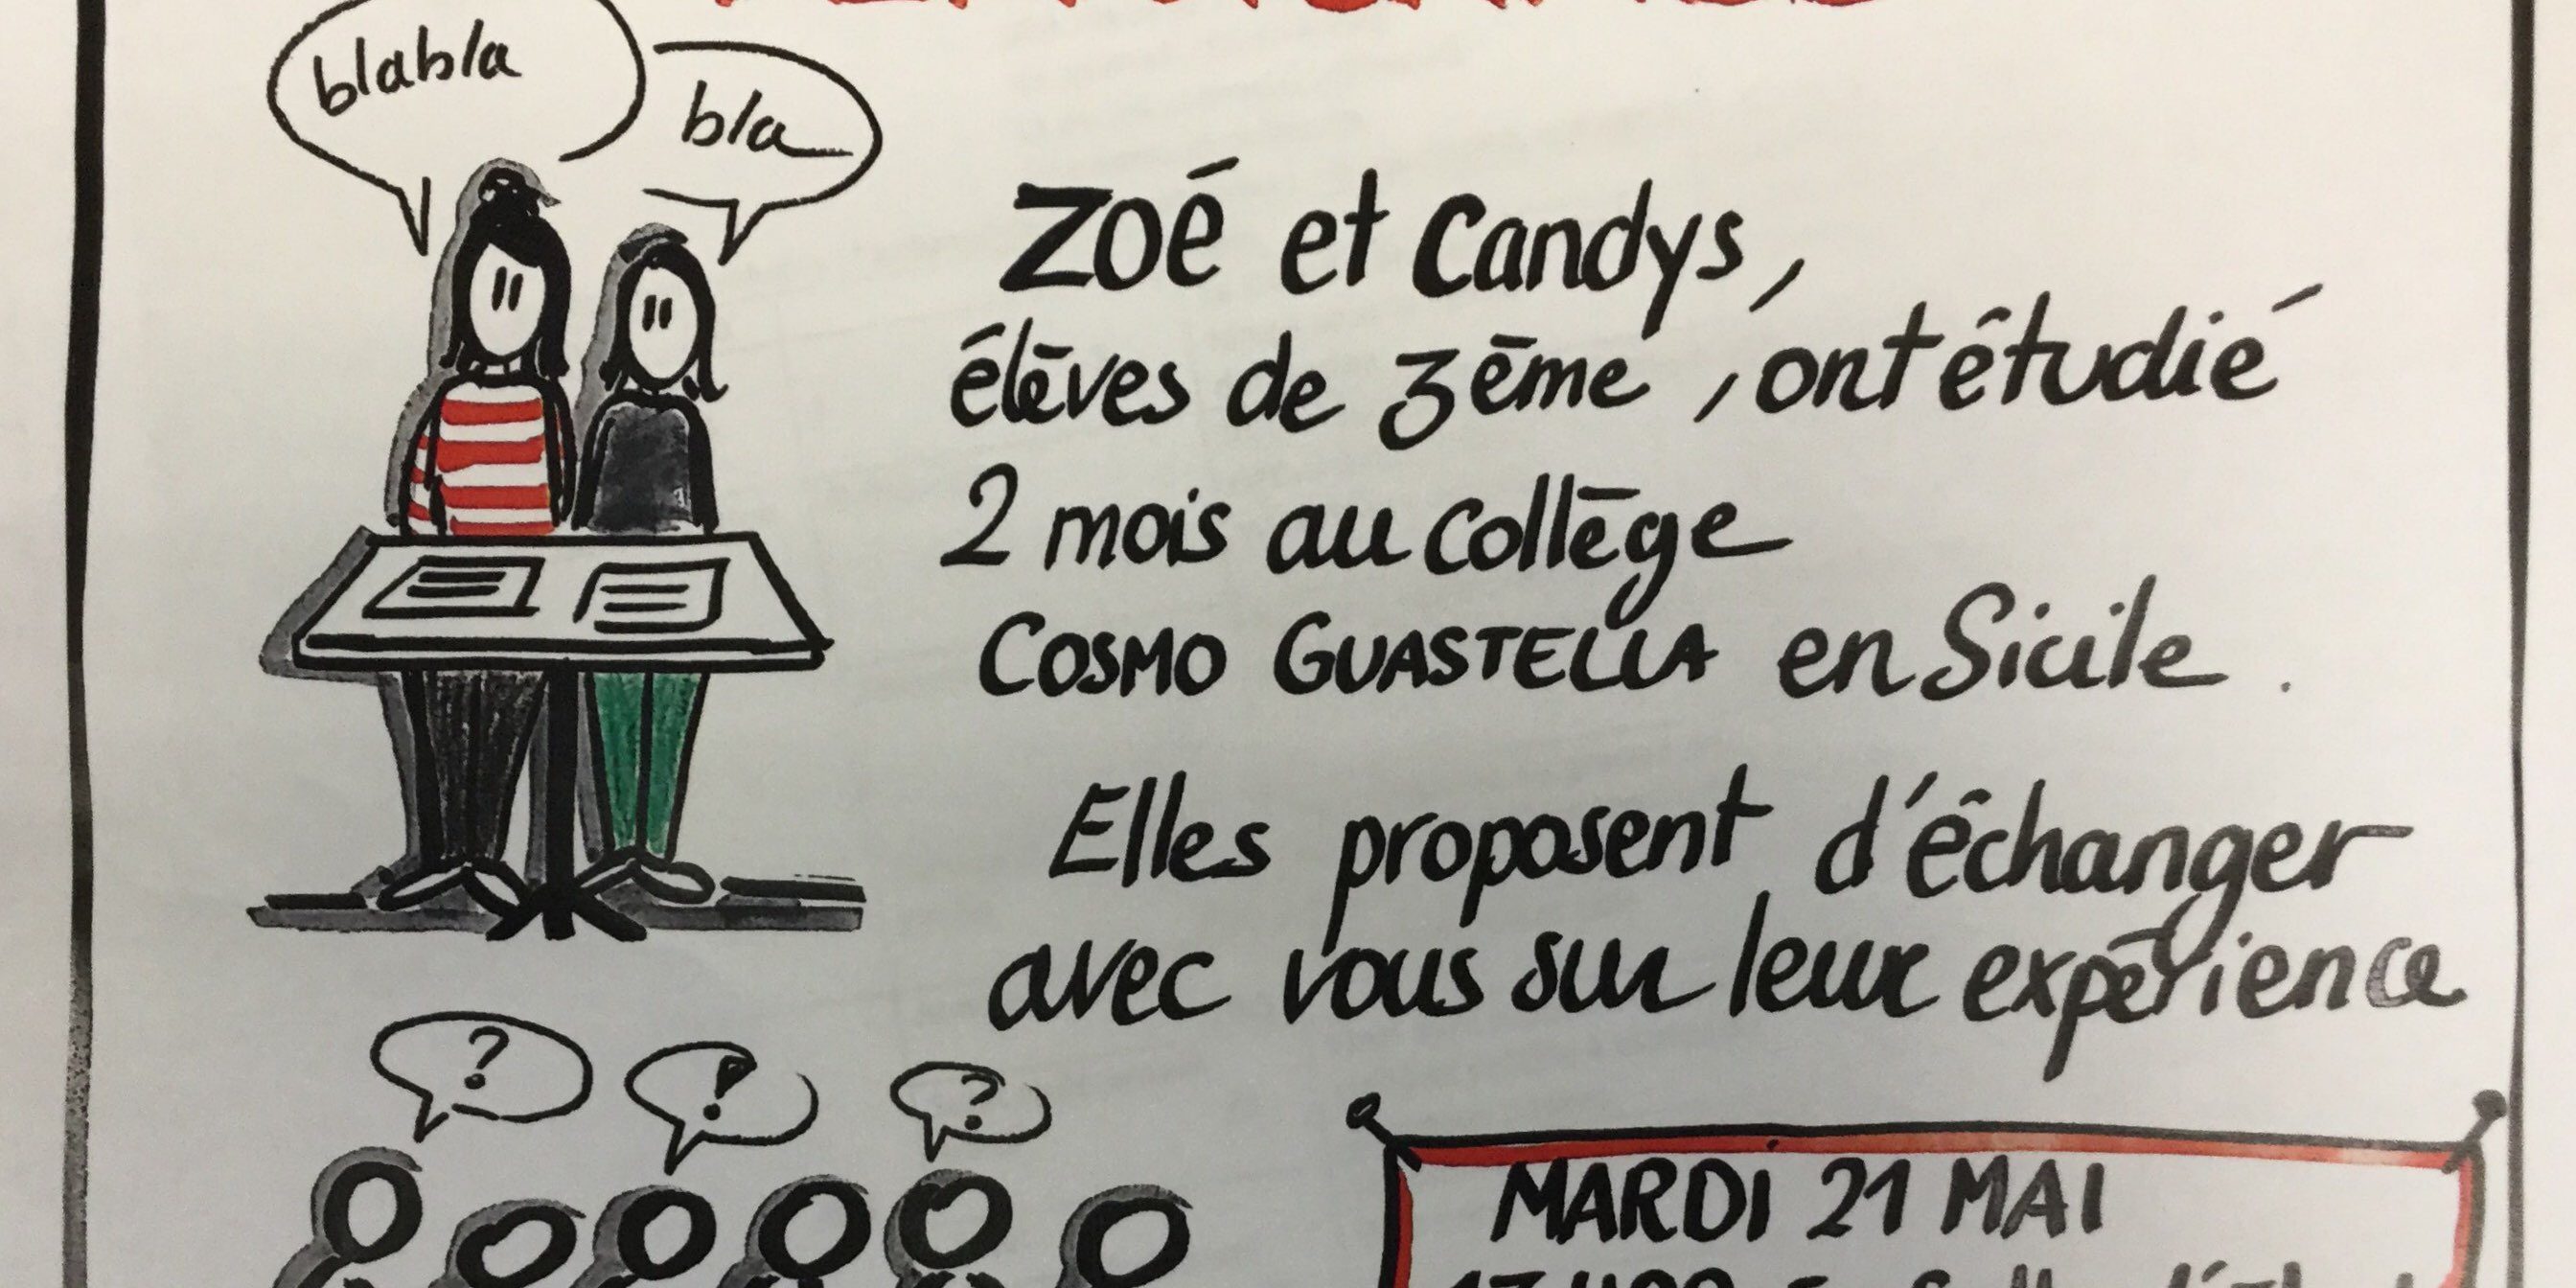 blabla
bla
Zoé et Candys,
élèves de 3ème, ont étudié
2 mois au collège
COSMO GUASTELLA en Sicile.
Elles proposent d'échanger
avec vous sur leur expérience
?
!
?
MARDI 21 MAI